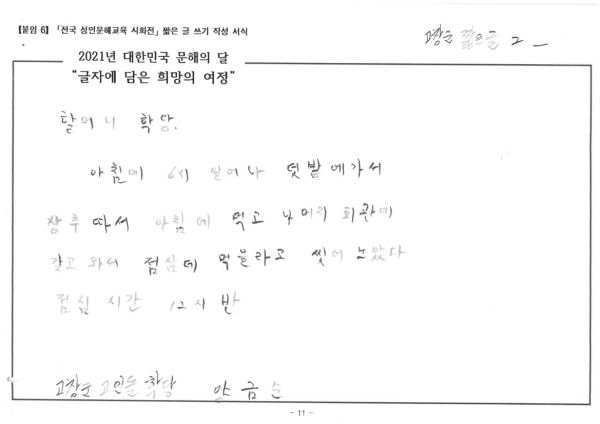 【붙임 6】 「전국 성인문해교육 시화전」 짧은 글 쓰기 작성 서식
고창군 짧은글 2
2021년 대한민국 문해의 달
“글자에 담은 희망의 여정”
할머니 학당.
아침에 6시 일어나 텃밭에가서
상추 따서 아침에 먹고 나머지 회관에
갖고 와서 점심데 먹을라고 씻어 노았다
점심 시간 12시 반
고창군 고인돌 학당 안금순
- 11 -